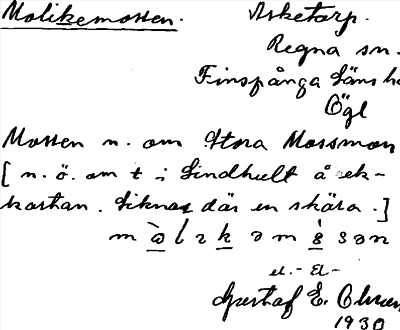 Molikemossen. Asketorp.
Regna sn.
Finspånga läns h
Ögl
Mossen n. om Stora Mossmon
[n. ö. om t i Lindhult å ek-
kartan. Liknar där en skära.]
el. - El -
Gustaf E.
1930